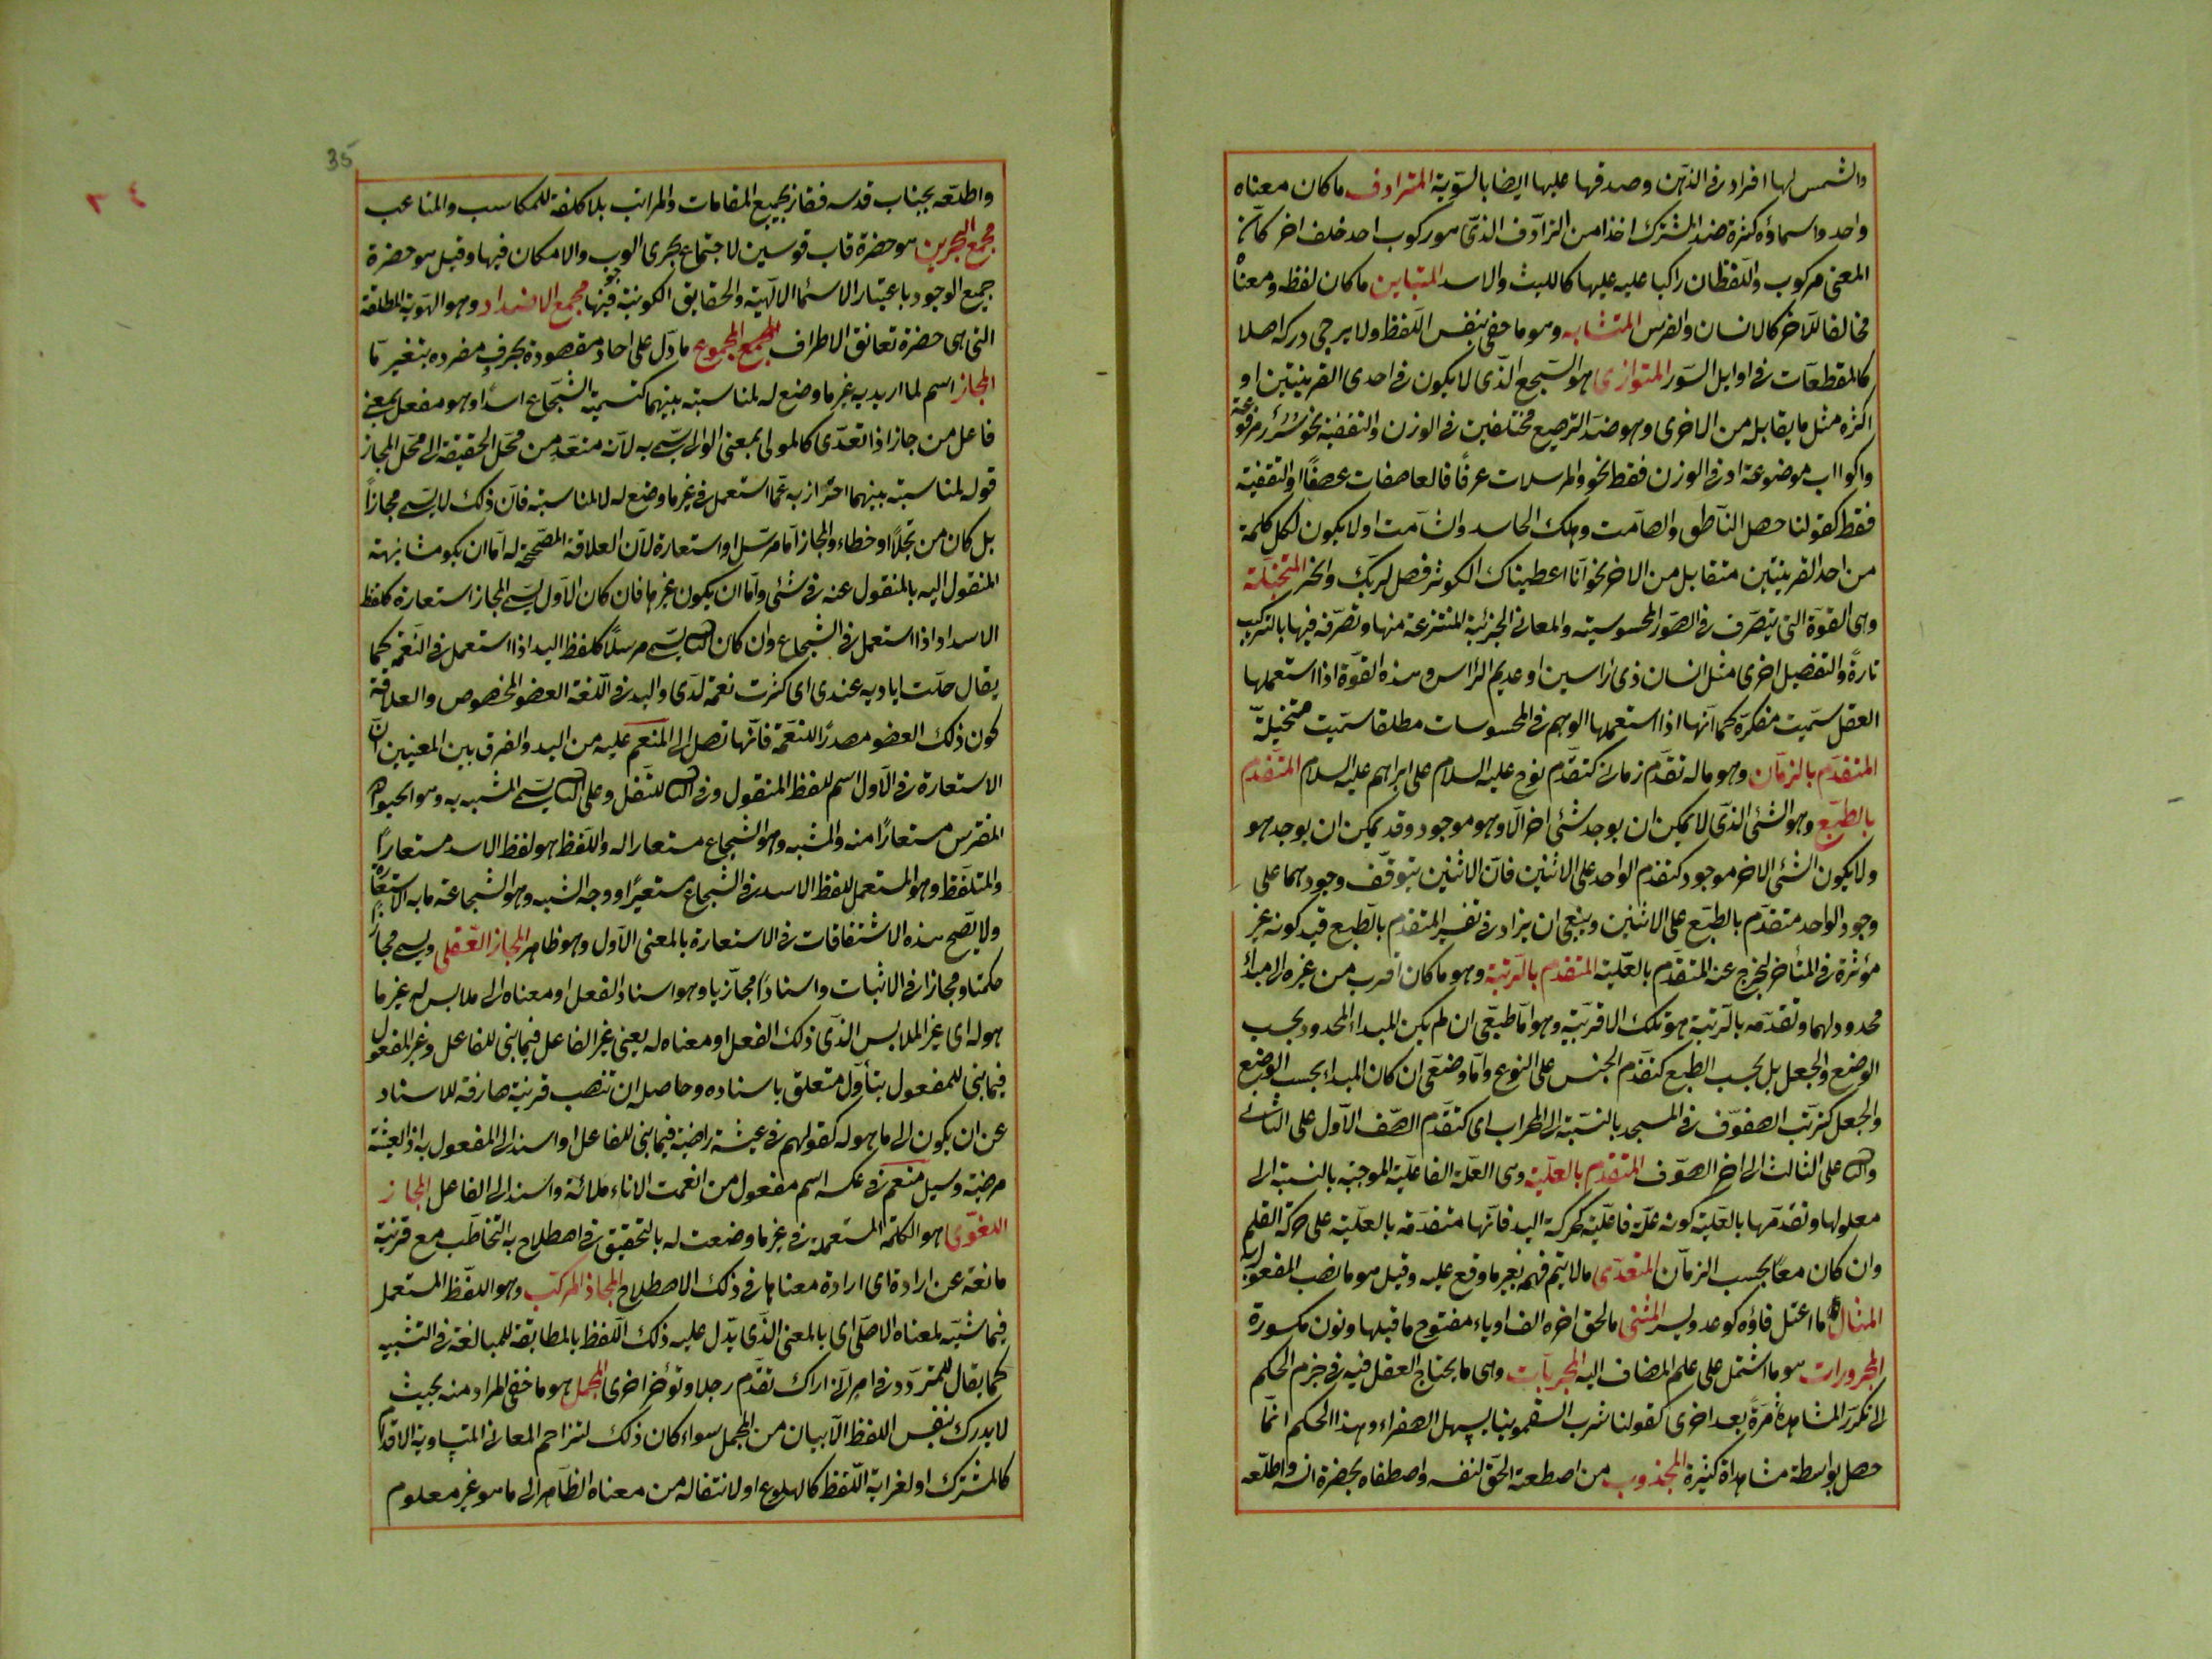 والشمس لها افراد فى الذهن وصدقها عليها ايضا بالسوية المترادف ما كان معناه
واحد واسماؤه كثرة ضد المشترك اخذا من الترادف الذى هو ركوب احد خلف اخر كان
المعنى مركوب واللفظان راكبا عليه عليها كالليث والاسد المتباين ما كان لفظه ومعناه
مخالفا للآخر كالانسان والفرس المتشابه وهو ما خفى بنفس اللفظ ولا يرجى دركه اصلا
كالمقطعات فى اوايل السور المتوازى هو السجع الذى لا يكون فى احدى القرينتين او
اكثره مثل ما يقابله من الاخرى وهو ضد الترصيع مختلفين فى الوزن والتقفية نحو سرر مرفوعة
واكواب موضوعة او فى الوزن فقط نحو والمرسلات عرفًا فالعاصفات عصفًا او التقفية
فقط كقولنا حصل الناطق والصامت وهلك الحاسد والشامت او لا يكون لكل كلمة
من احد القرينتين متقابل من الاخر نحو انا اعطيناك الكوثر فصل لربك وانحر المتخيلة
وهى القوة التى تتصرف فى الصور المحسوسية والمعانى الجزئية المنتزعة منها وتصرفه فيها بالتركيب
تارةً والتفصيل اخرى مثل انسان ذى راسين او عديم الرأس وهذه القوة اذا استعملها
العقل سميت مفكرة كما انها اذا استعملها الوهم فى المحسوسات مطلقا سميت متخيلة
المتقدم بالزمان وهو ما له تقدم زمانى كتقدم نوح عليه السلام على ابراهيم عليه السلام المتقدم
بالطبع وهو الشئ الذى لا يمكن ان يوجد شئ اخر الا وهو موجود وقد يمكن ان يوجد هو
ولا يكون الشئ الاخر موجود كتقدم الواحد على الاثنين فان الاثنين يتوقف وجودهما على
وجود الواحد متقدم بالطبع على الاثنين وينبغى ان يزاد فى تفسير المتقدم بالطبع قيد كونه غير
مؤثرة فى المتأخر ليخرج عنه المتقدم بالعلية المتقدم بالرتبة وهو ما كان اقرب من غيره الى مبدأ
محدود لهما وتقدمه بالرتبة هو تلك الاقربية وهو اما طبيعى ان لم يكن المبداء المحدود بحسب
الوضع والجعل بل بحسب الطبع كتقدم الجنس على النوع واما وضعى ان كان المبداء بحسب الوضع
والجعل كترتب الصفوف فى المسجد بالنسبة الى المحراب اى كتقدم الصف الاول على الثانى
والثانى على الثالث الى اخر الصفوف المتقدم بالعلية وهى العلة الفاعلية الموجبة بالنسبة الى
معلولها وتقدمها بالعلية كونه علة فاعلية كحركة اليد فانها متقدمة بالعلية على حركة القلم
وان كان معًا بحسب الزمان المتعدى ما لا يتم فهمه بغير ما وقع عليه وقيل هو ما نصب المفعول به
المثال ما اعتل فاؤه كوعد ويسر المثنى ما لحق اخره الف او ياء مفتوح ما قبلها ونون مكسورة
المجرورات هو ما اشتمل على علم المضاف اليه المجربات وهى ما يحتاج العقل فيه فى جزم الحكم
الى تكرر المشاهدة مرةً بعد اخرى كقولنا شرب السقمونيا يسهل الصفراء وهذا الحكم انما
حصل بواسطة مشاهداة كثيرة المجذوب من اصطعنه الحق لنفسه واصطفاه بحضرة انسه واطلعه
35
٣٤
واطلعه بجناب قدسه ففاز بجميع المقامات والمراتب بلا كلفة للمكاسب والمتاعب
مجمع البحرين هو حضرة قاب قوسين لاجتماع بحرى الوجوب والامكان فيها وقيل هو حضرة
جميع الوجود باعتبار الاسماء الالهية والحقايق الكونية فيها مجمع الاضداد وهو الهوية المطلقة
التى هى حضرة تعانق الاطراف المجموع ما دل على احاد مقصودة بحرف مفرده بتغير ما
المجاز اسم لما اريد به غير ما وضع له لمناسبة بينهما كتسمية الشجاع اسدًا وهو مفعل بمعنى
فاعل من جاز اذا تعدى كالمولى بمعنى الوالى سمى به لانه متعد من محل الحقيقة الى محل المجاز
قوله لمناسبة بينهما احتراز به عما استعمل فى غير ما وضع له لا لمناسبة فان ذلك لا يسمى مجازًا
بل كان مرتجلًا او خطاء والمجاز اما مرسل او استعارة لان العلاقة المصححة له اما ان يكون مشابهة
المنقول اليه بالمنقول عنه فى شئ واما ان يكون غيرها فان كان الاول يسمى المجاز استعارة كلفظ
الاسد اذا استعمل فى الشجاع وان كان الثانى يسمى مرسلًا كلفظ اليد اذا استعمل فى النعمة كما
يقال جلت اياديه عندى اى كثرت نعمه لدى واليد فى اللغة العضو المخصوص والعلاقة
كون ذلك العضو مصدرًا للنعمة فانها تصل الى المنعم عليه من اليد والفرق بين المعنيين ان
الاستعارة فى الاول اسم للفظ المنقول وفى الثانى للنقل وعلى الثانى يسمى المشبه به وهو الحيوان
المفترس مستعارًا منه والمشبه وهو الشجاع مستعارا له واللفظ هو لفظ الاسد مستعارًا
والمتلفظ وهو المستعمل للفظ الاسد فى الشجاع مستعيرًا ووجه الشبه وهو الشجاعة ما به الاستعارة
ولا يصح هذه الاشتقاقات فى الاستعارة بالمعنى الاول وهو ظاهر المجاز العقلى ويسمى مجازًا
حكميا ومجازا فى الاثبات واسنادًا مجازيا وهو اسناد الفعل او معناه الى ملابس له غير ما
هو له اى غير الملابس الذى ذلك الفعل او معناه له يعنى غير الفاعل فيما بنى للفاعل وغير المفعول
فيما بنى للمفعول بتأول متعلق باسناده وحاصله ان تنصب قرينة صارفة للاسناد
عن ان يكون الى ما هو له كقولهم فى عيشة راضية فيما بنى للفاعل واسند الى المفعول به اذ العيشة
مرضية وسيل مفعم فى عكسه اسم مفعول من انعمت الاناء ملائته واسند الى الفاعل المجاز
اللغوى هو الكلمة المستعملة فى غير ما وضعت له بالتحقيق فى اصطلاح به التخاطب مع قرينة
مانعة عن ارادة اى ارادة معناها فى ذلك الاصطلاح المجاز المركب وهو اللفظ المستعمل
فيما شبه لمعناه الاصلى اى بالمعنى الذى يدل عليه ذلك اللفظ بالمطابقة للمبالغة فى التشبيه
كما يقال للمتردد فى امر انى اراك تقدم رجلا وتؤخر اخرى المجمل هو ما خفى المراد منه بحيث
لا يدرك بنفس اللفظ الا ببيان من المجمل سواء كان ذلك لتزاحم المعانى المتساوية الاقدام
كالمشترك او لغرابة اللفظ كالهلوع او لانتقاله من معناه الظاهر الى ما هو غير معلوم